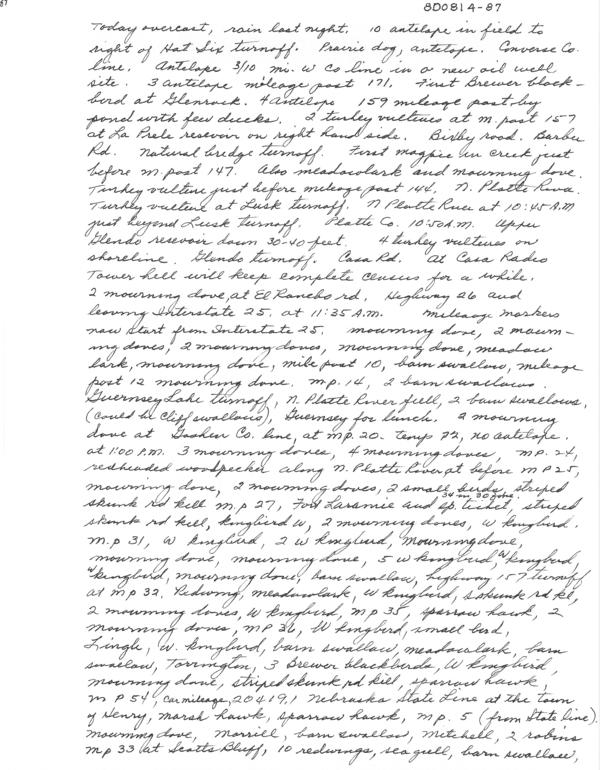 87
8D0814-87
Today overcast, rain last night. 10 antelope in field to
right of Hat Six turnoff. Prairie dog, antelope. Converse Co.
line. Antelope 3/10 mi. w Co line in a new oil well
site. 3 antelope mileage post 171. First Brewer black-
bird at Glenrock. 4 antelope 159 mileage post by
pond with few ducks. 2 turkey vultures at m. post 157
at La Prele resevoir on right hand side. Bixby road. Barber
Rd. Natural bridge turnoff. First magpie in creek just
before m. post 147. Also meadowlark and mourning dove.
Turkey vulture just before mileage post 144. N. Platte River.
Turkey vulture at Lusk turnoff. N Platte River at 10:45 A.M
just beyond Lusk turnoff. Platte Co. 10:50 A.M. Upper
Glendo resevoir down 30-40 feet. 4 turkey vultures on
shoreline. Glendo turnoff. Casa Rd. At Casa Radio
Tower hell will keep complete census for a while.
2 mourning dove, at El Rancho rd. Highway 26 and
leaving Interstate 25. at 11:35 A.M. mileage markers
now start from Interstate 25. mourning dove, 2 mourn-
ing doves, 2 mourning doves, mourning dove, meadow
lark, mourning dove, mile post 10, barn swallow, mileage
post 12 mourning dove. m.p. 14, 2 barn swallows.
Guernsey Lake turnoff, N. Platte River full, 2 barn swallows,
(could be Cliff swallows), Guernsey for lunch. 2 mourning
dove at Goshen Co. line, at m.p. 20. temp 72, no antelope.
at 1:00 P.M. 3 mourning doves, 4 mourning doves, m.p. 24,
redheaded woodpecker along N. Platte River at before m p 25,
mourning dove, 2 mourning doves, 2 small birds, striped
skunk rd kill m.p 27, Fort Laramie and sp. ticket, 34 in 30 zone. striped
skunk rd kill, kingbird W, 2 mourning doves, W kingbird.
m.p 31, W kingbird, 2 W kingbird, mourning dove,
mourning dove, mourning dove, 5 W kingbird, W kingbird,
W kingbird, mourning dove, barn swallow, highway 157 turnoff
at m p 32. Redwing, meadowlark, W kingbird, s skunk rd kl,
2 mourning doves, W kingbird, m p 35, sparrow hawk, 2
mourning doves, m p 36, W kingbird, small bird,
Lingle, W. kingbird, barn swallow, meadowlark, barn
swallow, Torrington, 3 Brewer blackbirds, W kingbird,
mourning dove, striped skunk rd kill, sparrow hawk,
m P 54, car mileage, 20419.1 Nebraska State Line at the town
of Henry, marsh hawk, sparrow hawk, m p. 5 (from State line).
mourning dove, Morrill, barn swallow, Mitchell, 2 robins
m p 33 at Scotts Bluff, 10 redwings, sea gull, barn swallow,